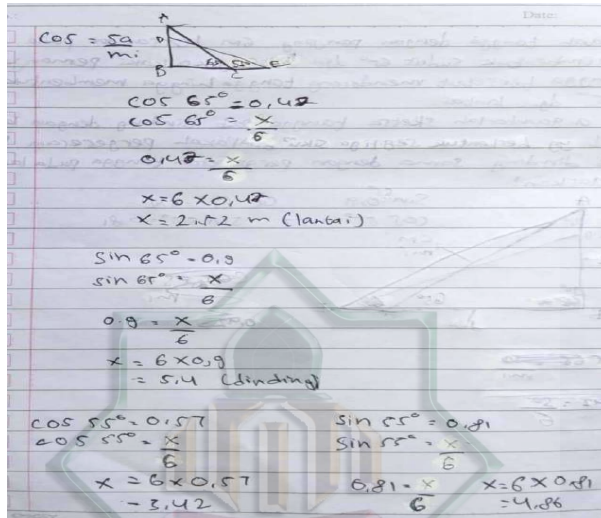 Date:
cos = sa/mi
A
D
B C E
65° 55°
cos 65° = 0,42
cos 65° = x/6
0,42 = x/6
x = 6 x 0,42
x = 2,52 m (lantai)
sin 65° = 0,9
sin 65° = x/6
0.9 = x/6
x = 6 x 0,9
= 5,4 (dinding)
cos 55° = 0,57
cos 55° = x/6
x = 6 x 0,57
= 3,42
sin 55° = 0,81
sin 55° = x/6
0,81 = x/6 x = 6 x 0,81
= 4,86